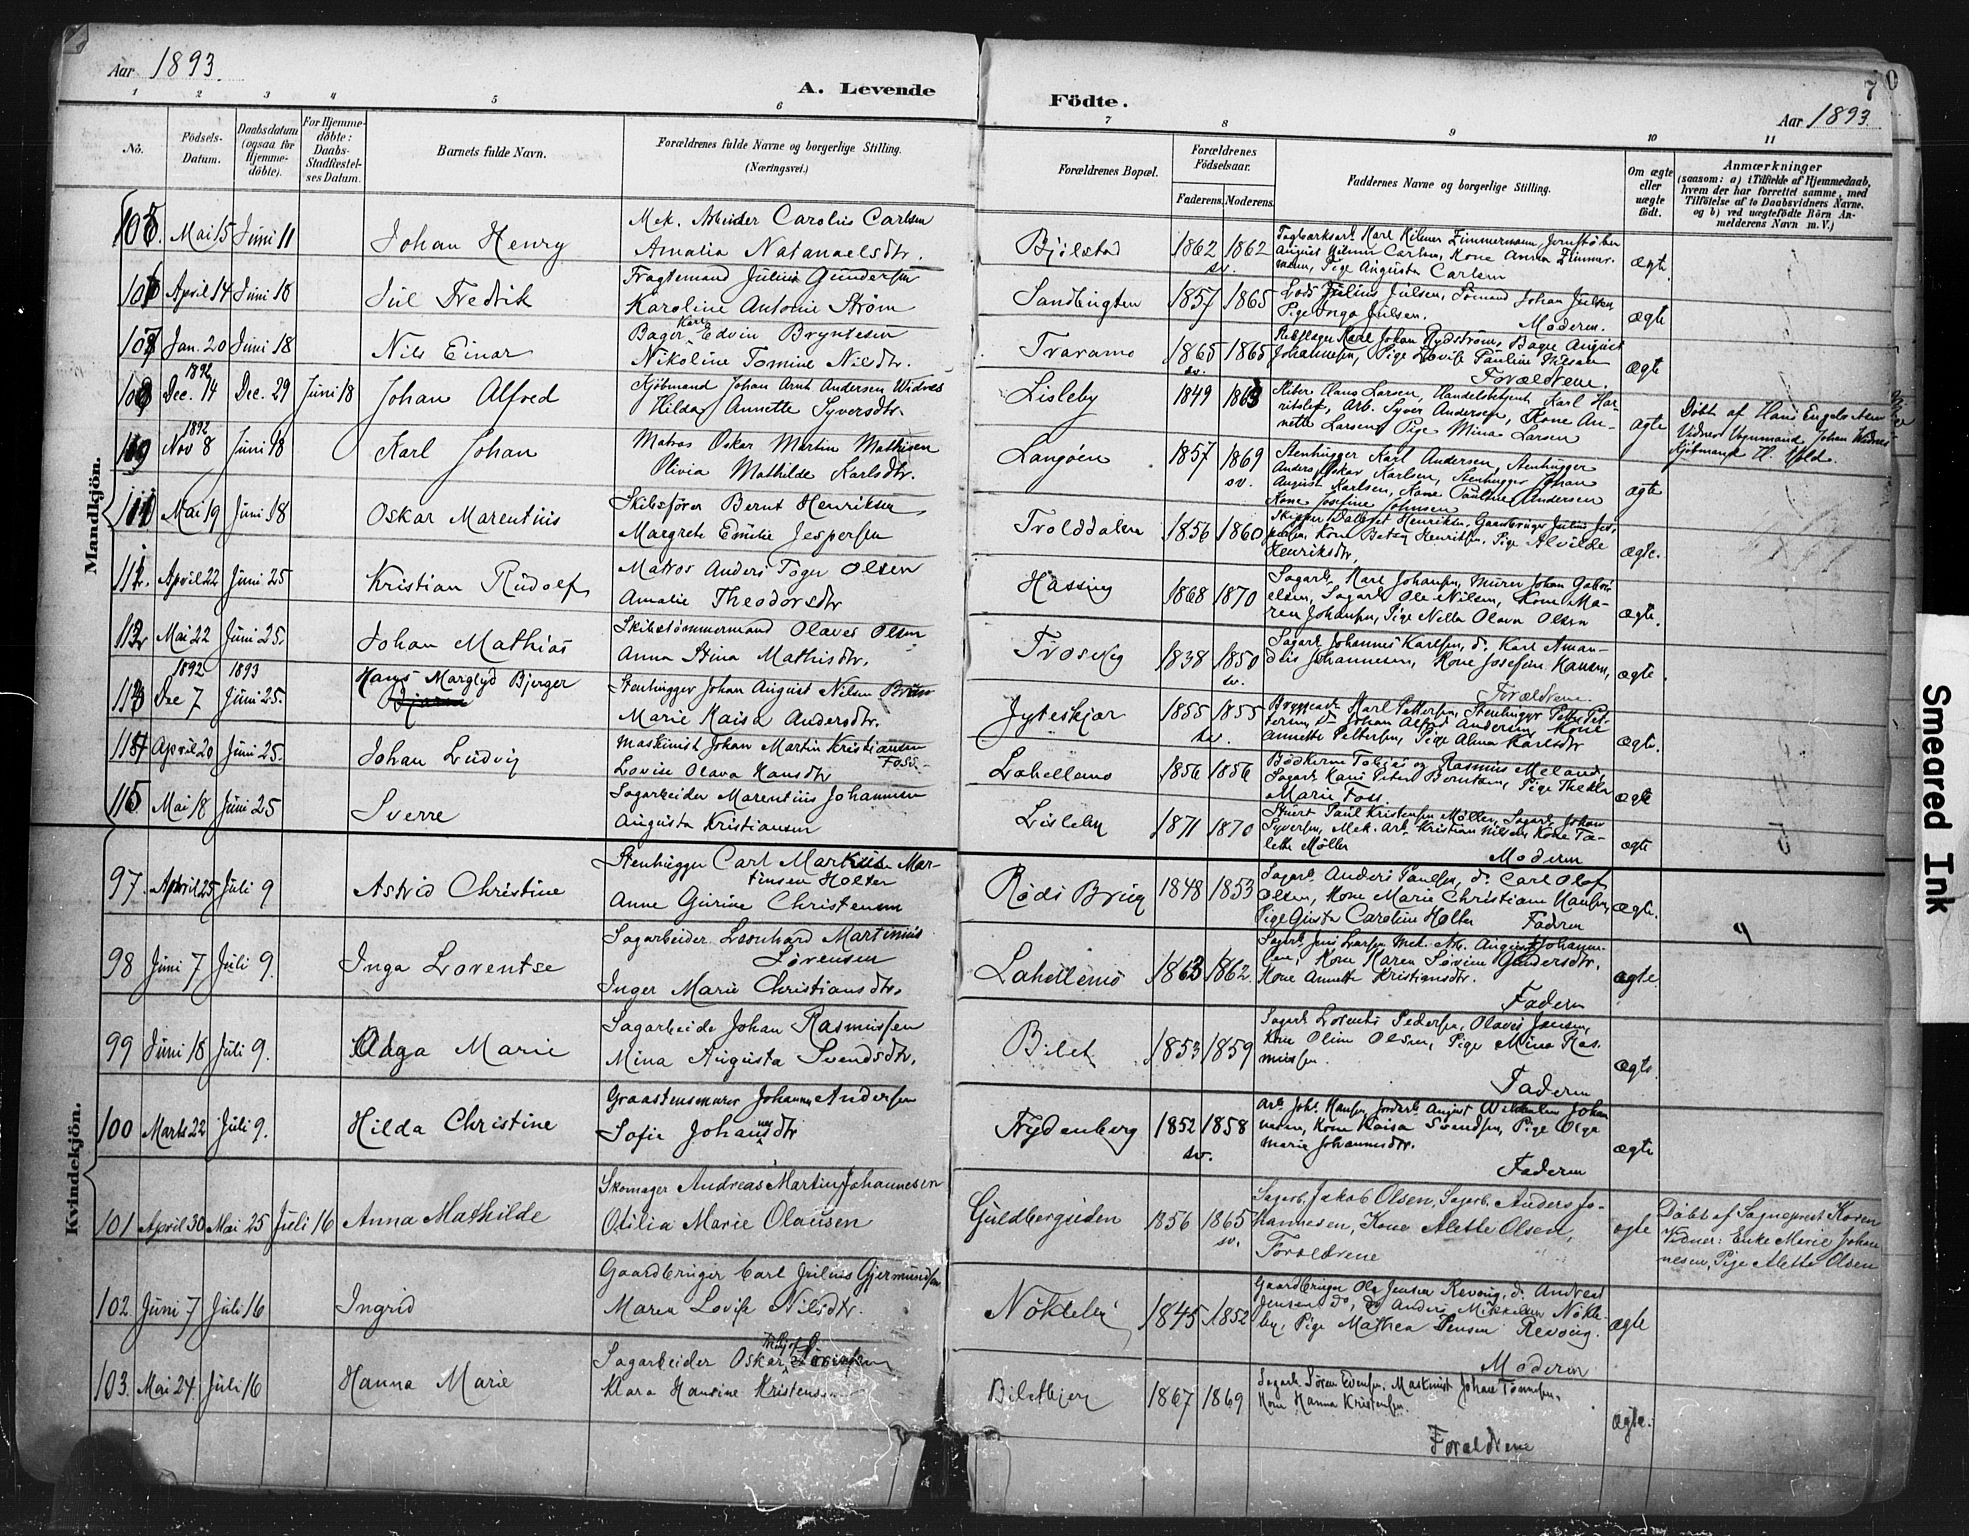 Aar 1893.
A. Levende
Födte.
Aar 1893.
70
1 2 3 4 5 6 7 8 9 10 11
No.
Födsels-Datum.
Daabsdatum (ogsaa for Hjemme-döbte).
For Hjemme-döbte: Daabs-Stadfæstel-ses Datum.
Barnets fulde Navn.
Forældrenes fulde Navne og borgerlige Stilling. (Næringsvei.)
Forældrenes Bopæl.
Forældrenes Födselsaar.
Faderens. Moderens.
Faddernes Navne og borgerlige Stilling.
Om ægte eller uægte födt.
Anmærkninger
(saasom: a) i Tilfælde af Hjemmedaab, hvem der har forrettet samme, med Tilföielse af to Daabsvidners Navne, og b) ved uægtefödte Börn An-melderens Navn m. V.)
Mandkjön.
105. Mai 15 Juni 11 Johan Henry
Mek. Arbeider Carolius Carlsen
Amalia Natanaelsdtr.
Bjölstad 1862 1862 sv.
Karl Hilmer Zimmermann, Jernstöber
August Hilmer Carlsen, Kone Anna Zimmer-
mann, Pige Augusta Carlsen
ægte
106 April 14 Juni 18 Jul Fredrik
Fragtemand Julius Gundersen
Karoline Antonie Ström
Sandbugten 1857 1865
Lods Julius Julsen, Sömand Johan Julsen,
Pige Inga Julsen. Moderen.
ægte
107 Jan. 20 Juni 18 Nils Einar
Bager Karl Edvin Bryntesen
Nikoline Tomine Nilsdtr.
Traramo 1865 1865 sv.
Rebslager Karl Johan Rydström, Bager August
Johannesen, Pige Lovise Pauline Nilsen
Forældrene.
ægte
108 1892 Dec. 14 Dec. 29 Juni 18 Johan Alfred
Kjöbmand Johan Arnt Andersen Widnes
Hilda Annette Syversdtr.
Lisleby 1849 1863
Sliber Hans Larsen, Handelsbetjent Karl Har-
ritslef, Arb. Syver Andersen, Kone An-
nette Larsen, Pige Mina Larsen
ægte
Döbt af Hans Engebretsen
Vidner Vognmand Johan Widnes
Kjöbmand H. Hold.
109 1892 Nov 8 Juni 18 Karl Johan
Matros Oskar Martin Mathisen
Olivia Mathilde Karlsdtr.
Langöen 1857 1869 sv.
Stenhugger Karl Andersen, Stenhugger
Anders Oskar Karlsen, Stenhugger Johan
August Karlsen, Kone Pauline Andersen
Kone Josefine Johnsen
ægte
110 Mai 19 Juni 18 Oskar Marentius
Skibsförer Bernt Henriksen
Margrete Emilie Jespersen
Trolddalen 1856 1860
Skipper Henriksen, Gaardbruger Julius Jes-
persen, Kone Betzy Henriksen, Pige Alvilde
Henriksdtr.
ægte.
111. April 22 Juni 25 Kristian Rudolf
Matros Anders Toger Olsen
Amalie Theodorsdtr
Hassing 1868 1870
Sagarb. Karl Johansen, Murer Johan Gabri-
elsen, Sagarb. Ole Nilsen, Kone Ma-
ren Johansen, Pige Nella Olava Olsen
ægte.
112 Mai 22 Juni 25. Johan Mathias
Skibstömmermand Olaves Olsen
Anna Stina Mathisdtr.
Trosvig 1838 1850 sv.
Sagarb. Johannes Karlsen, d. Karl Aman-
dus Johannesen, Kone Josefine Hansen,
Forældrene
ægte.
113 1892 Dec 7 1893 Juni 25. Hans Marglyd Bjerger
Stenhugger Johan August Nilsen
Marie Kaisa Andersdtr.
Jyteskjær 1855 1855 sv.
Bryggearb. Karl Pettersen, Stenhugger Petter Pet-
tersen, do Johan Alfred Andersen, Kone
Annette Pettersen, Pige Alma Karlsdtr
ægte.
114 April 20 Juni 25. Johan Ludvig
Maskinist Johan Martin Kristiansen
Foss
Lovise Olava Hansdtr
Lahellemo 1856 1856
Bödkerne Tobias og Rasmus Meland,
Sagarb. Hans Peter Berntsen, Pige Thekla
Marie Foss.
ægte
115 Mai 18 Juni 25 Sverre
Sagarbeider Marentius Johannesen
Augusta Kristiansen
Lisleby 1871 1870
Stuert Paul Kristensen Möller, Sagarb. Johan
Syversen, Mek. Arb. Kristian Nilsen, Kone Ta-
lette Möller
Moderen
ægte
Kvindekjön.
97. April 25 Juli 9 Astrid Christine
Stenhugger Carl Markus Mar-
tinsen Holter
Anne Gurine Christensen
Röds Brug 1848 1853
Sagarb. Anders Paulsen, d. Carl Olaf
Olsen, Kone Marie Christiane Hansen,
Pige Gusta Caroline Holter Faderen
ægte.
98 Juni 7 Juli 9. Inga Lorentse
Sagarbeider Leonhard Martinius
Sörensen
Inger Marie Christiansdtr.
Lahellemo 1863 1862.
Sagarb. Jens Larsen, Mek. Arb. August Johannes-
sen, Kone Karen Lovise Gundersdtr.
Kone Annette Kristiansdtr.
Faderen
ægte
99 Juni 18 Juli 9. Olga Marie
Sagarbeider Johan Rasmussen
Mina Augusta Svendsdtr.
Bilet 1853 1859
Sagarb. Lorents Pedersen, Olaves Jensen,
Kone Oline Olsen, Pige Mina Ras-
mussen
Faderen
ægte
100 Marts 22 Juli 9. Hilda Christine
Graastensmurer Johannes Andersen
Sofie Johannesdtr
Nydenberg 1852 1858 sv.
Arb. Johs. Hansen, Jordarb. August Wilhelm Johan
nesen, Kone Kaisa Svendsen, Pige Olga
Marie Johannesdtr.
Faderen
ægte
101 April 30 Mai 25 Juli 16 Anna Mathilde
Skomager Andreas Martin Johannesen
Otilia Marie Olausen
Guldbergsiden 1856 1865 sv.
Sagarb. Jakob Olsen, Sagarb. Anders Jo-
hannesen, Kone Alette Olsen,
Forældrene
ægte
Döbt af Sogneprest Koren
Vidner: Enke Marie Johan
nesen, Pige Alette Olsen
102. Juni 7 Juli 16 Ingrid
Gaardbruger Carl Julius Gjermundsen
Maren Lovise Nilsdtr.
Nökleby 1845 1852
Gaardbruger Ole Jensen Revoug, d. Andreas
Jensen do, do Anders Mikkelsen Nökle-
by, Pige Mathea Jensen Revoug.
Moderen
ægte
103. Mai 24. Juli 16 Hanna Marie
Sagarbeider Oskar
Klara Hansine Kristensen
Biletbjerg 1867 1869
Sagarb. Sören Edensen, Maskinist Johan Tönnesen,
Kone Hanna Kristensen.
Forældrene
ægte.
Smeared Ink